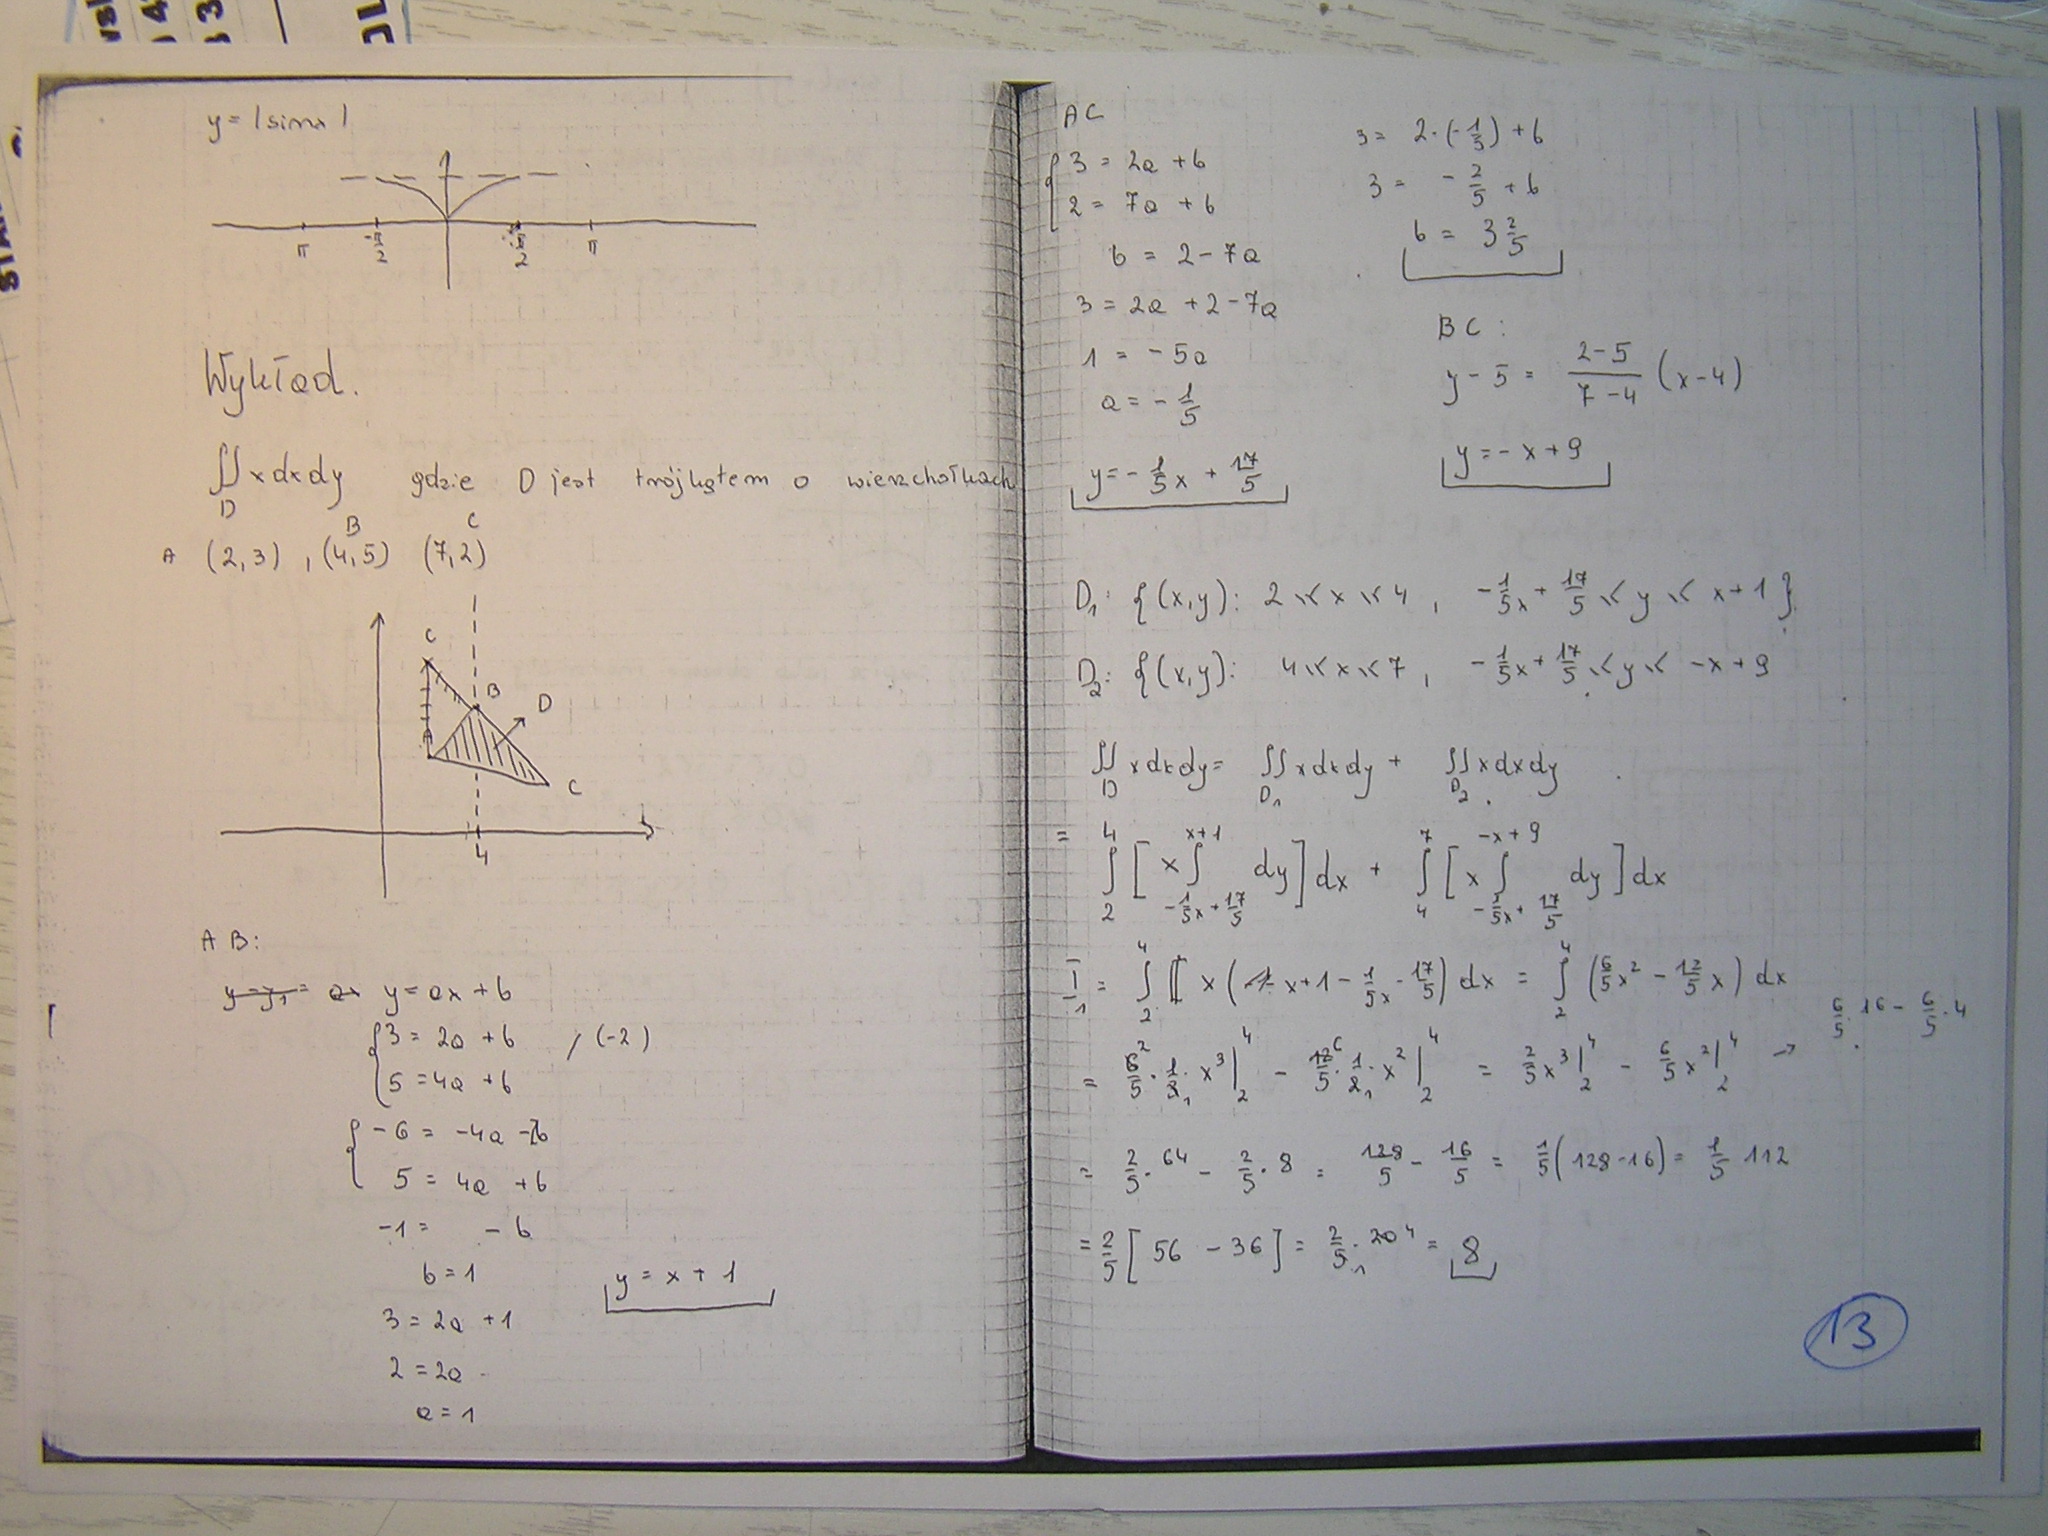 y = |sinx|
π -π/2 π/2 π
Wykład.
∬_D x dx dy gdzie D jest trójkątem o wierzchołkach
A (2,3) , B (4,5) C (7,2)
C
B
D
A
C
4
AB:
y = ax + b
{ 3 = 2a + b / (-2)
5 = 4a + b
{ -6 = -4a -2b
5 = 4a + b
-1 = - b
b = 1
y = x + 1
3 = 2a + 1
2 = 2a
a = 1
AC
{ 3 = 2a + b
2 = 7a + b
b = 2 - 7a
3 = 2a + 2 - 7a
1 = -5a
a = -1/5
y = -1/5 x + 17/5
3 = 2·(-1/5) + b
3 = -2/5 + b
b = 3 2/5
BC:
y - 5 = (2-5)/(7-4) (x-4)
y = -x + 9
D₁: {(x,y): 2 ≤ x ≤ 4 , -1/5 x + 17/5 ≤ y ≤ x+1}
D₂: {(x,y): 4 ≤ x ≤ 7 , -1/5 x + 17/5 ≤ y ≤ -x + 9
∬_D x dx dy = ∬_D₁ x dx dy + ∬_D₂ x dx dy
= ∫_2^4 [ x ∫_{-1/5 x + 17/5}^{x+1} dy ] dx + ∫_4^7 [ x ∫_{-1/5 x + 17/5}^{-x+9} dy ] dx
I₁ = ∫_2^4 x ( x+1 - 1/5 x - 17/5 ) dx = ∫_2^4 (6/5 x² - 12/5 x) dx
= 6/5 · 1/3 · x³ |_2^4 - 12/5 · 1/2 · x² |_2^4 = 2/5 x³ |_2^4 - 6/5 x² |_2^4 → 6/5 · 16 - 6/5 · 4
= 2/5 · 64 - 2/5 · 8 = 128/5 - 16/5 = 1/5 (128-16) = 1/5 112
= 2/5 [ 56 - 36 ] = 2/5 · 20 = 8
13